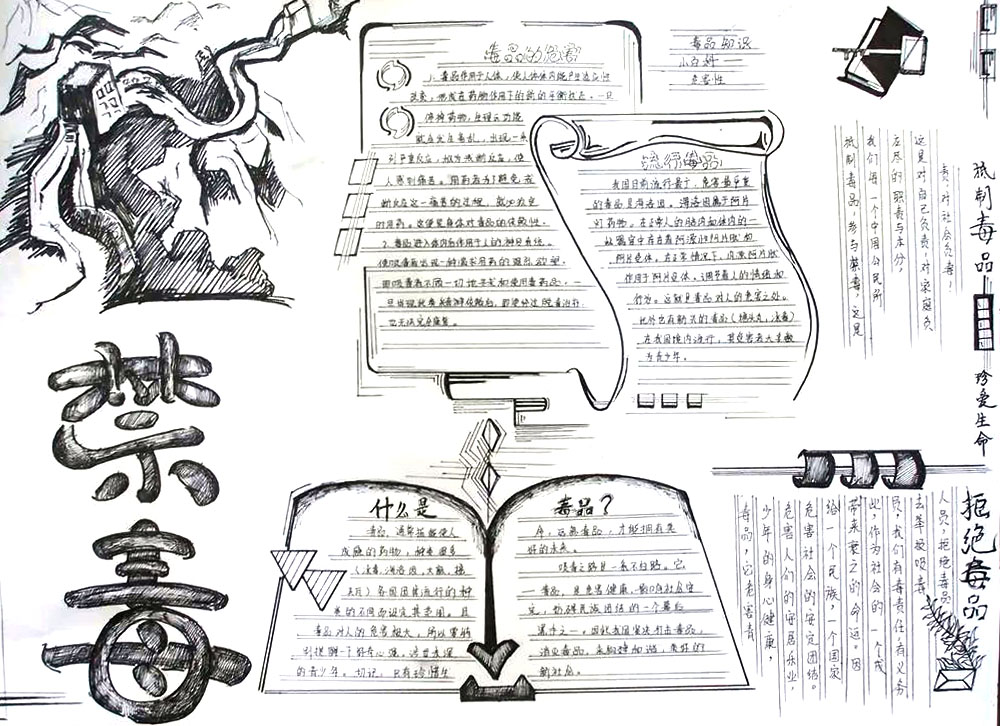 毒品的危害
1. 毒品作用于人体，使人体体内能产生适应性
改变，形成在药物作用下的新的平衡状态。一旦
停掉药物，生理功能
就会发生紊乱，出现一系
列严重反应，称为戒断反应，使
人感到痛苦。用药者为了避免戒
断反应这一痛苦的过程，就必须定
时用药。
2. 毒品进入体内后作用于人的神经系统，
使吸毒者出现一种渴求用药的强烈欲望，
驱使吸毒者不顾一切地寻求和使用毒品。一
旦出现精神依赖后，即使经过脱毒治疗，
也无法完全康复。
毒品知识
小百科——
危害性
流行毒品
我国目前流行最广、危害最严重
的毒品是海洛因，海洛因属于阿片
灯药物，在正常人的脑内和体内的一
些器官中存在着阿片肽和
阿片受体，在正常情况下，内源阿片肽
作用于阿片受体，调节着人的情绪和
行为。这就是毒品对人的危害之处。
此外也有新式的毒品（摇头丸，冰毒）
在我国境内流行，其危害者大多数
为青少年。
抵制毒品
珍爱生命
拒绝毒品
责，对社会负责！
这是对自己负责，对家庭负
应尽的职责与本分，
我们每一个中国公民所
抵制毒品，参与禁毒，这是
禁毒
什么是
毒品，通常指能使人
成瘾的药物，种类很多
（冰毒、海洛因、大麻、摇
头丸）各国因其流行的种
类的不同而设定其范围。且
毒品对人的危害极大，
的青少年。切记，只有珍惜生
毒品？
命，远离毒品，才能拥有美
好的未来。
吸毒之路是一条不归路。它
毒品，是危害健康、影响社会安
定、
恶作之一。因此我国坚决打击毒品，
消灭毒品，来构建和谐、美好的
新社会。
人员，拒绝毒品
去举报吸毒
员，我们有毒责任，有义务
此，作为社会的一个成
带来衰亡的命运。因
给一个民族，一个国家
危害社会的安定团结。
危害人们的安居乐业，
少年的身心健康，
毒品，它危害青